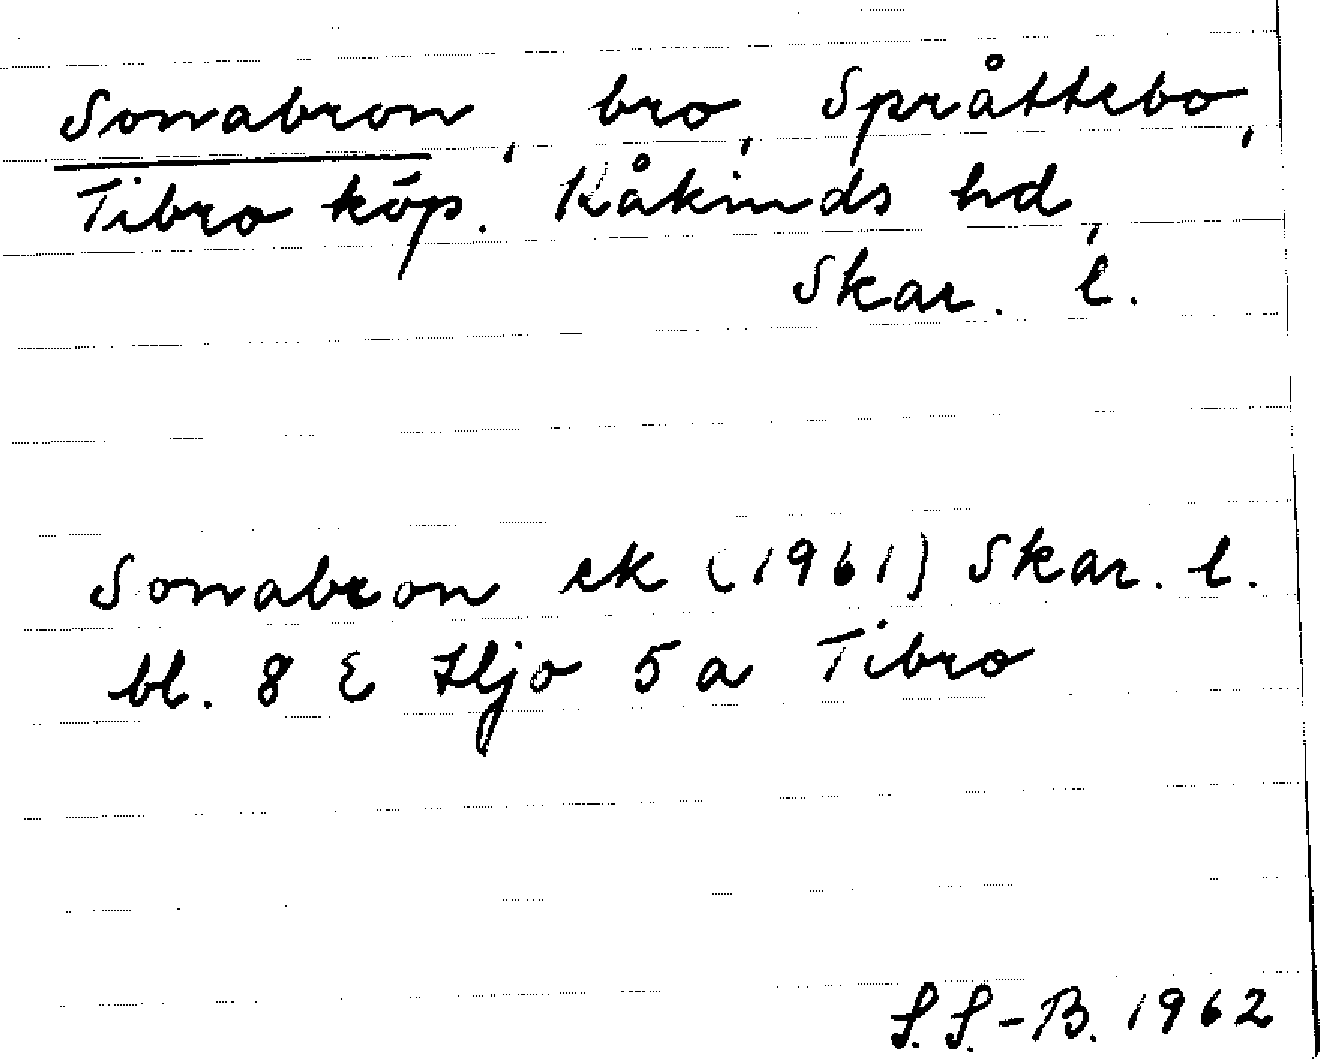 Sonabron, bro, Språttebo,
Tibro köp. Kåkinds hd,
Skar. l.
Sonabron ek (1961) Skar. l.
bl. 8 E Hjo 5 a Tibro
S. S.-B. 1962